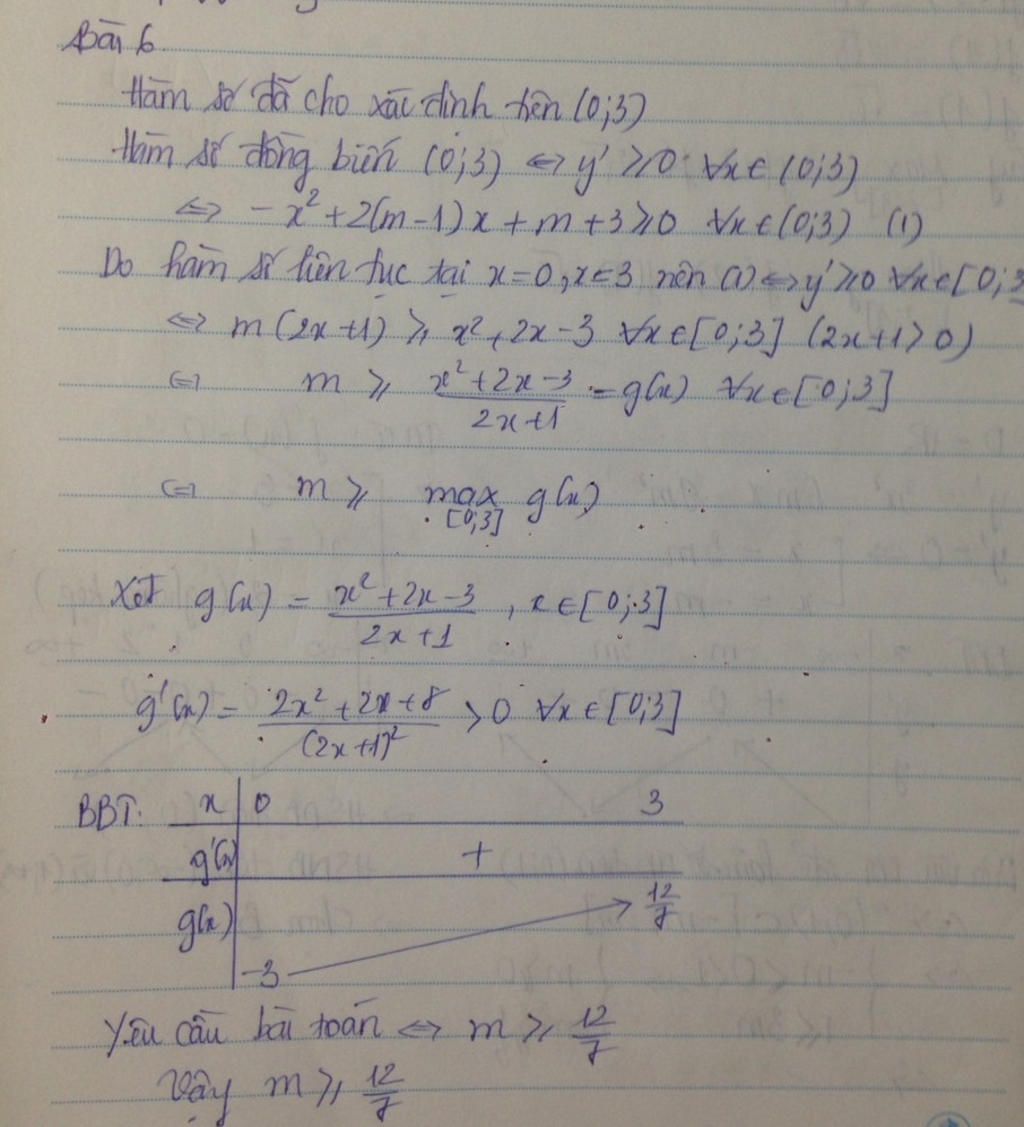 Bài 6
Hàm số đã cho xác định trên (0;3)
Hàm số đồng biến (0;3) ⇔ y' ≥ 0 ∀x ∈ (0;3)
⇔ -x² + 2(m-1)x + m + 3 ≥ 0 ∀x ∈ (0;3) (1)
Do hàm số liên tục tại x=0, x=3 nên (1) ⇔ y' ≥ 0 ∀x ∈ [0;3
⇔ m(2x+1) ≥ x² + 2x - 3 ∀x ∈ [0;3] (2x+1 > 0)
⇔ m ≥ (x² + 2x - 3)/(2x+1) = g(x) ∀x ∈ [0;3]
⇔ m ≥ max g(x)
[0;3]
Xét g(x) = (x² + 2x - 3)/(2x+1), x ∈ [0;3]
g'(x) = (2x² + 2x + 8)/(2x+1)² > 0 ∀x ∈ [0;3]
BBT: x 0 3
g'(x) +
g(x) 12/7
-3
Yêu cầu bài toán ⇔ m ≥ 12/7
Vậy m ≥ 12/7